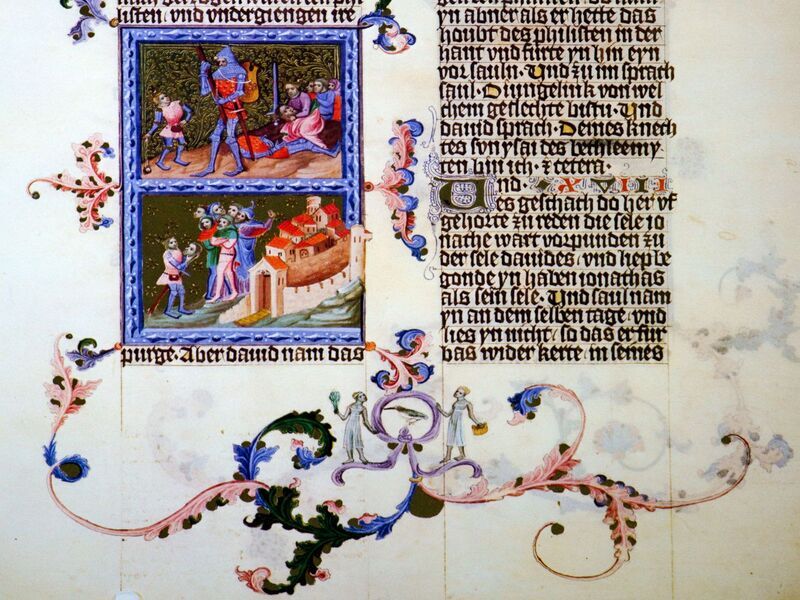 listen / vnd vndergiengen ire
purge. Aber dauid nam das
yn abner als er hette das
houbt des philisten in der
hant vnd furte yn hin eyn
vor sauln. Vnd zu im sprach
saul. O iungelink von wel
chem geslechte bistu. Vnd
dauid sprach. Deines knech
tes svn ysai des bethleemy
ten bin ich. ⁊ cetera.
Und. XVIII
es geschach do her vf
gehorte zu reden die sele io
nache wart vorpunden zu
der sele dauides / vnd liep be
gonde yn haben ionathas
als sein sele. Vnd saul nam
yn an dem selben tage. vnd
lies yn nicht / so das er fur
bas wider kerte / in seines